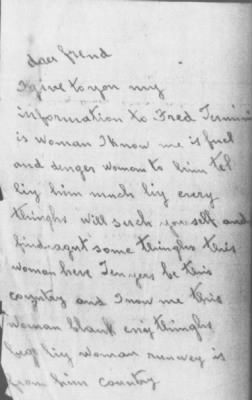 dear frend
I give to you my
information to Fred
is woman I know me is fuel
and denger woman to him tel
liy him much liy every
thinghs will serch you self and
find agut some thinghs this
woman here Ten yers be this
coyntry and I now me this
woman blank eny thinghs
liy woman runwey is
from him country